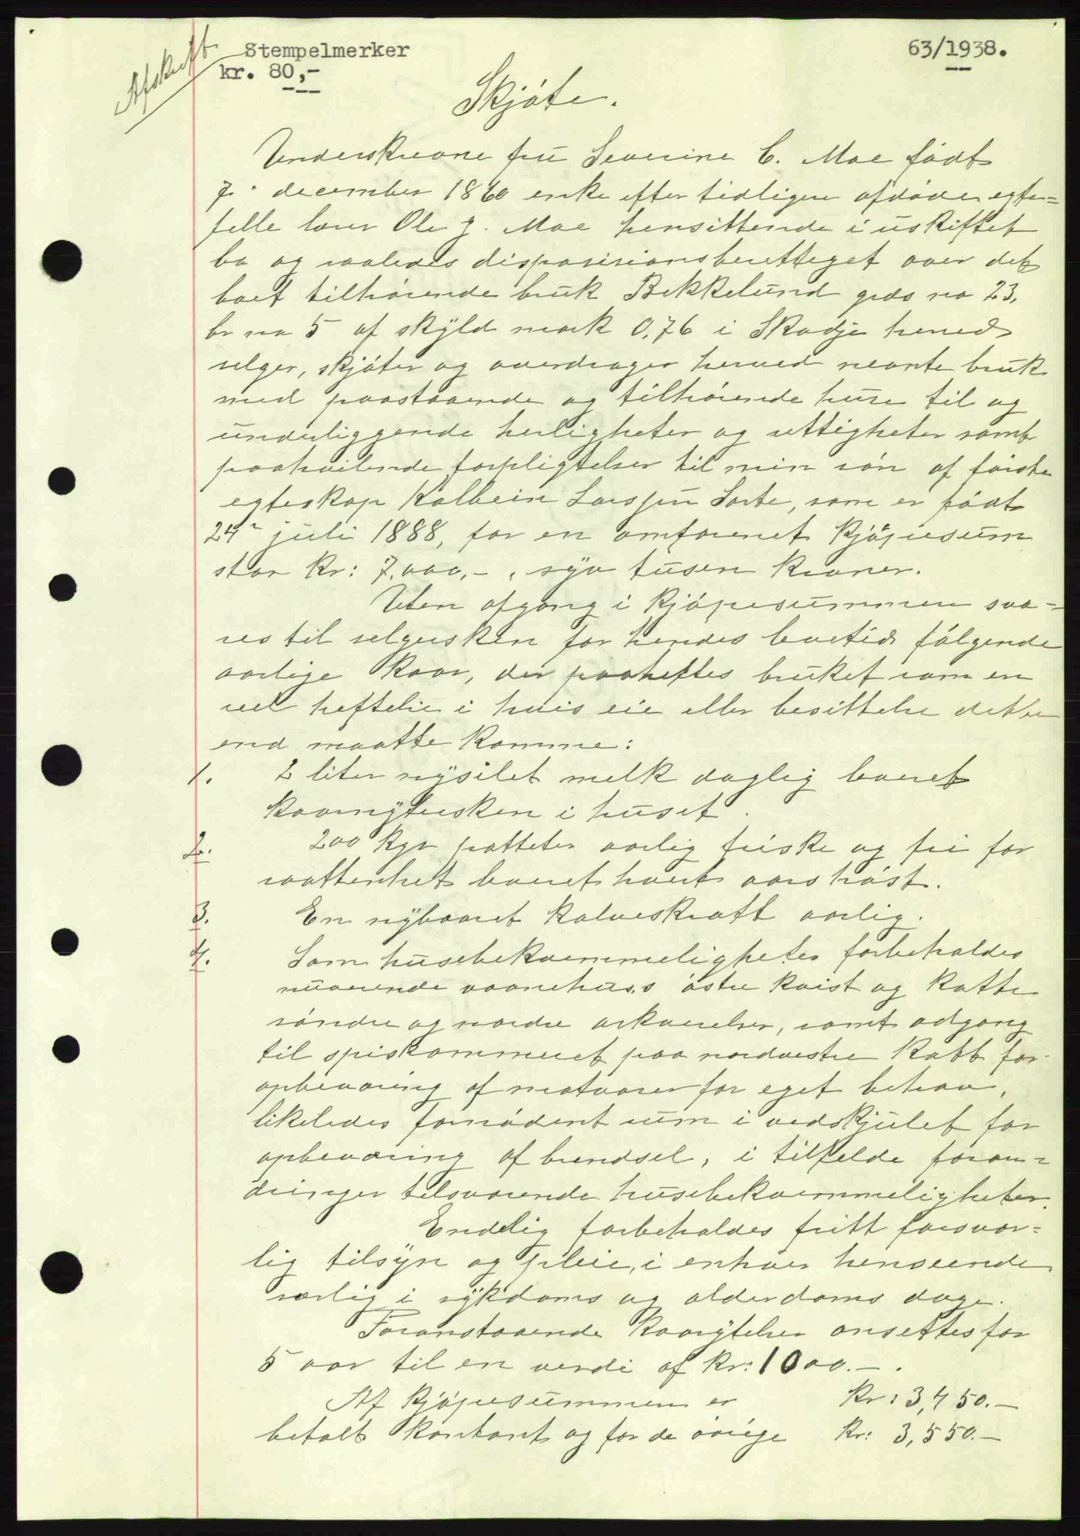 Afskrift
Stempelmerker
kr. 80,-
63/1938.
Skjøte.
Underskrevne fru Severine C. Moe født
7. december 1860 enke efter tidligere afdøde egte-
felle lærer Ole J. Moe hensittende i uskiftet
bo og saaledes disposisionsberettiget over det
boet tilhørende bruk Bekkelund grds no 23,
br no 5 af skyld mark 0,76 i Skodje herred
selger, skjøter og overdrager herved nevnte bruk
med paastaaende og tilhørende huse til og
underliggende herligheter og rettigheter samt
paahvilende forpligtelser til min søn af første
egteskap Kolbein Larssen Sorte, som er født
24de juli 1888, for en omforenet kjøpesum
stor kr: 7.000,-, syv tusen kroner.
Uten afgang i kjøpesummen sva-
res til selgersken for hendes levetid følgende
aarlige kaar, der paaheftes bruket som en
reel heftelse i hvis eie eller besittelse dette
end maatte komme:
1. 2 liter nysilet melk daglig levert
kaarnydersken i huset.
2. 200 kgr potteter aarlig friske og fri for
raattenhet levert hvert aars høst.
3. En nybaaret kalveskrott aarlig.
4. Som husebekvemmeligheter forbeholdes
nuværende vaanehus's østre kvist og kott
søndre og nordre arkverelser, samt adgang
til spiskammeret paa nordvestre kott for
opbevaring af matvarer for eget behov,
likeledes fornødent rum i vedskjulet for
opbevaring af brendsel, i tilfelde foran-
dringer tilsvarende husebekvemmeligheter.
Endelig forbeholdes fritt forsvar-
lig tilsyn og pleie, i enhver henseende
særlig i sykdoms og alderdoms dage.
Foranstaaende kaarytelser ansettes for
5 aar til en verdi af kr: 1000.-.
Af kjøpesummen er kr: 3,450.-
betalt kontant og for de øvrige kr: 3,550.-